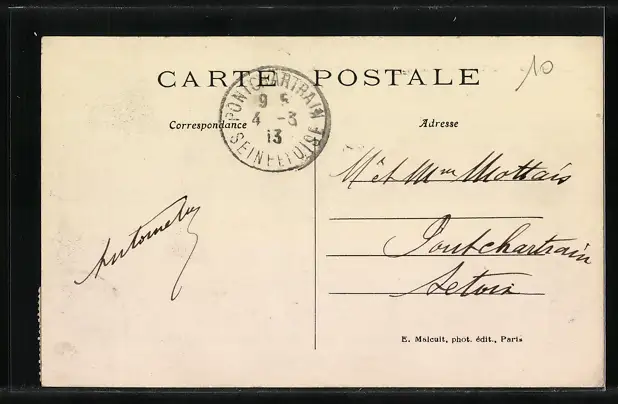 10
CARTE POSTALE
PONTCHARTRAIN
9 5
4 -3
13
SEINE ET OISE
Correspondance
Adresse
Mr et Mme Mottais
Pontchartrain
Set oise
E. Malcuit, phot. édit., Paris